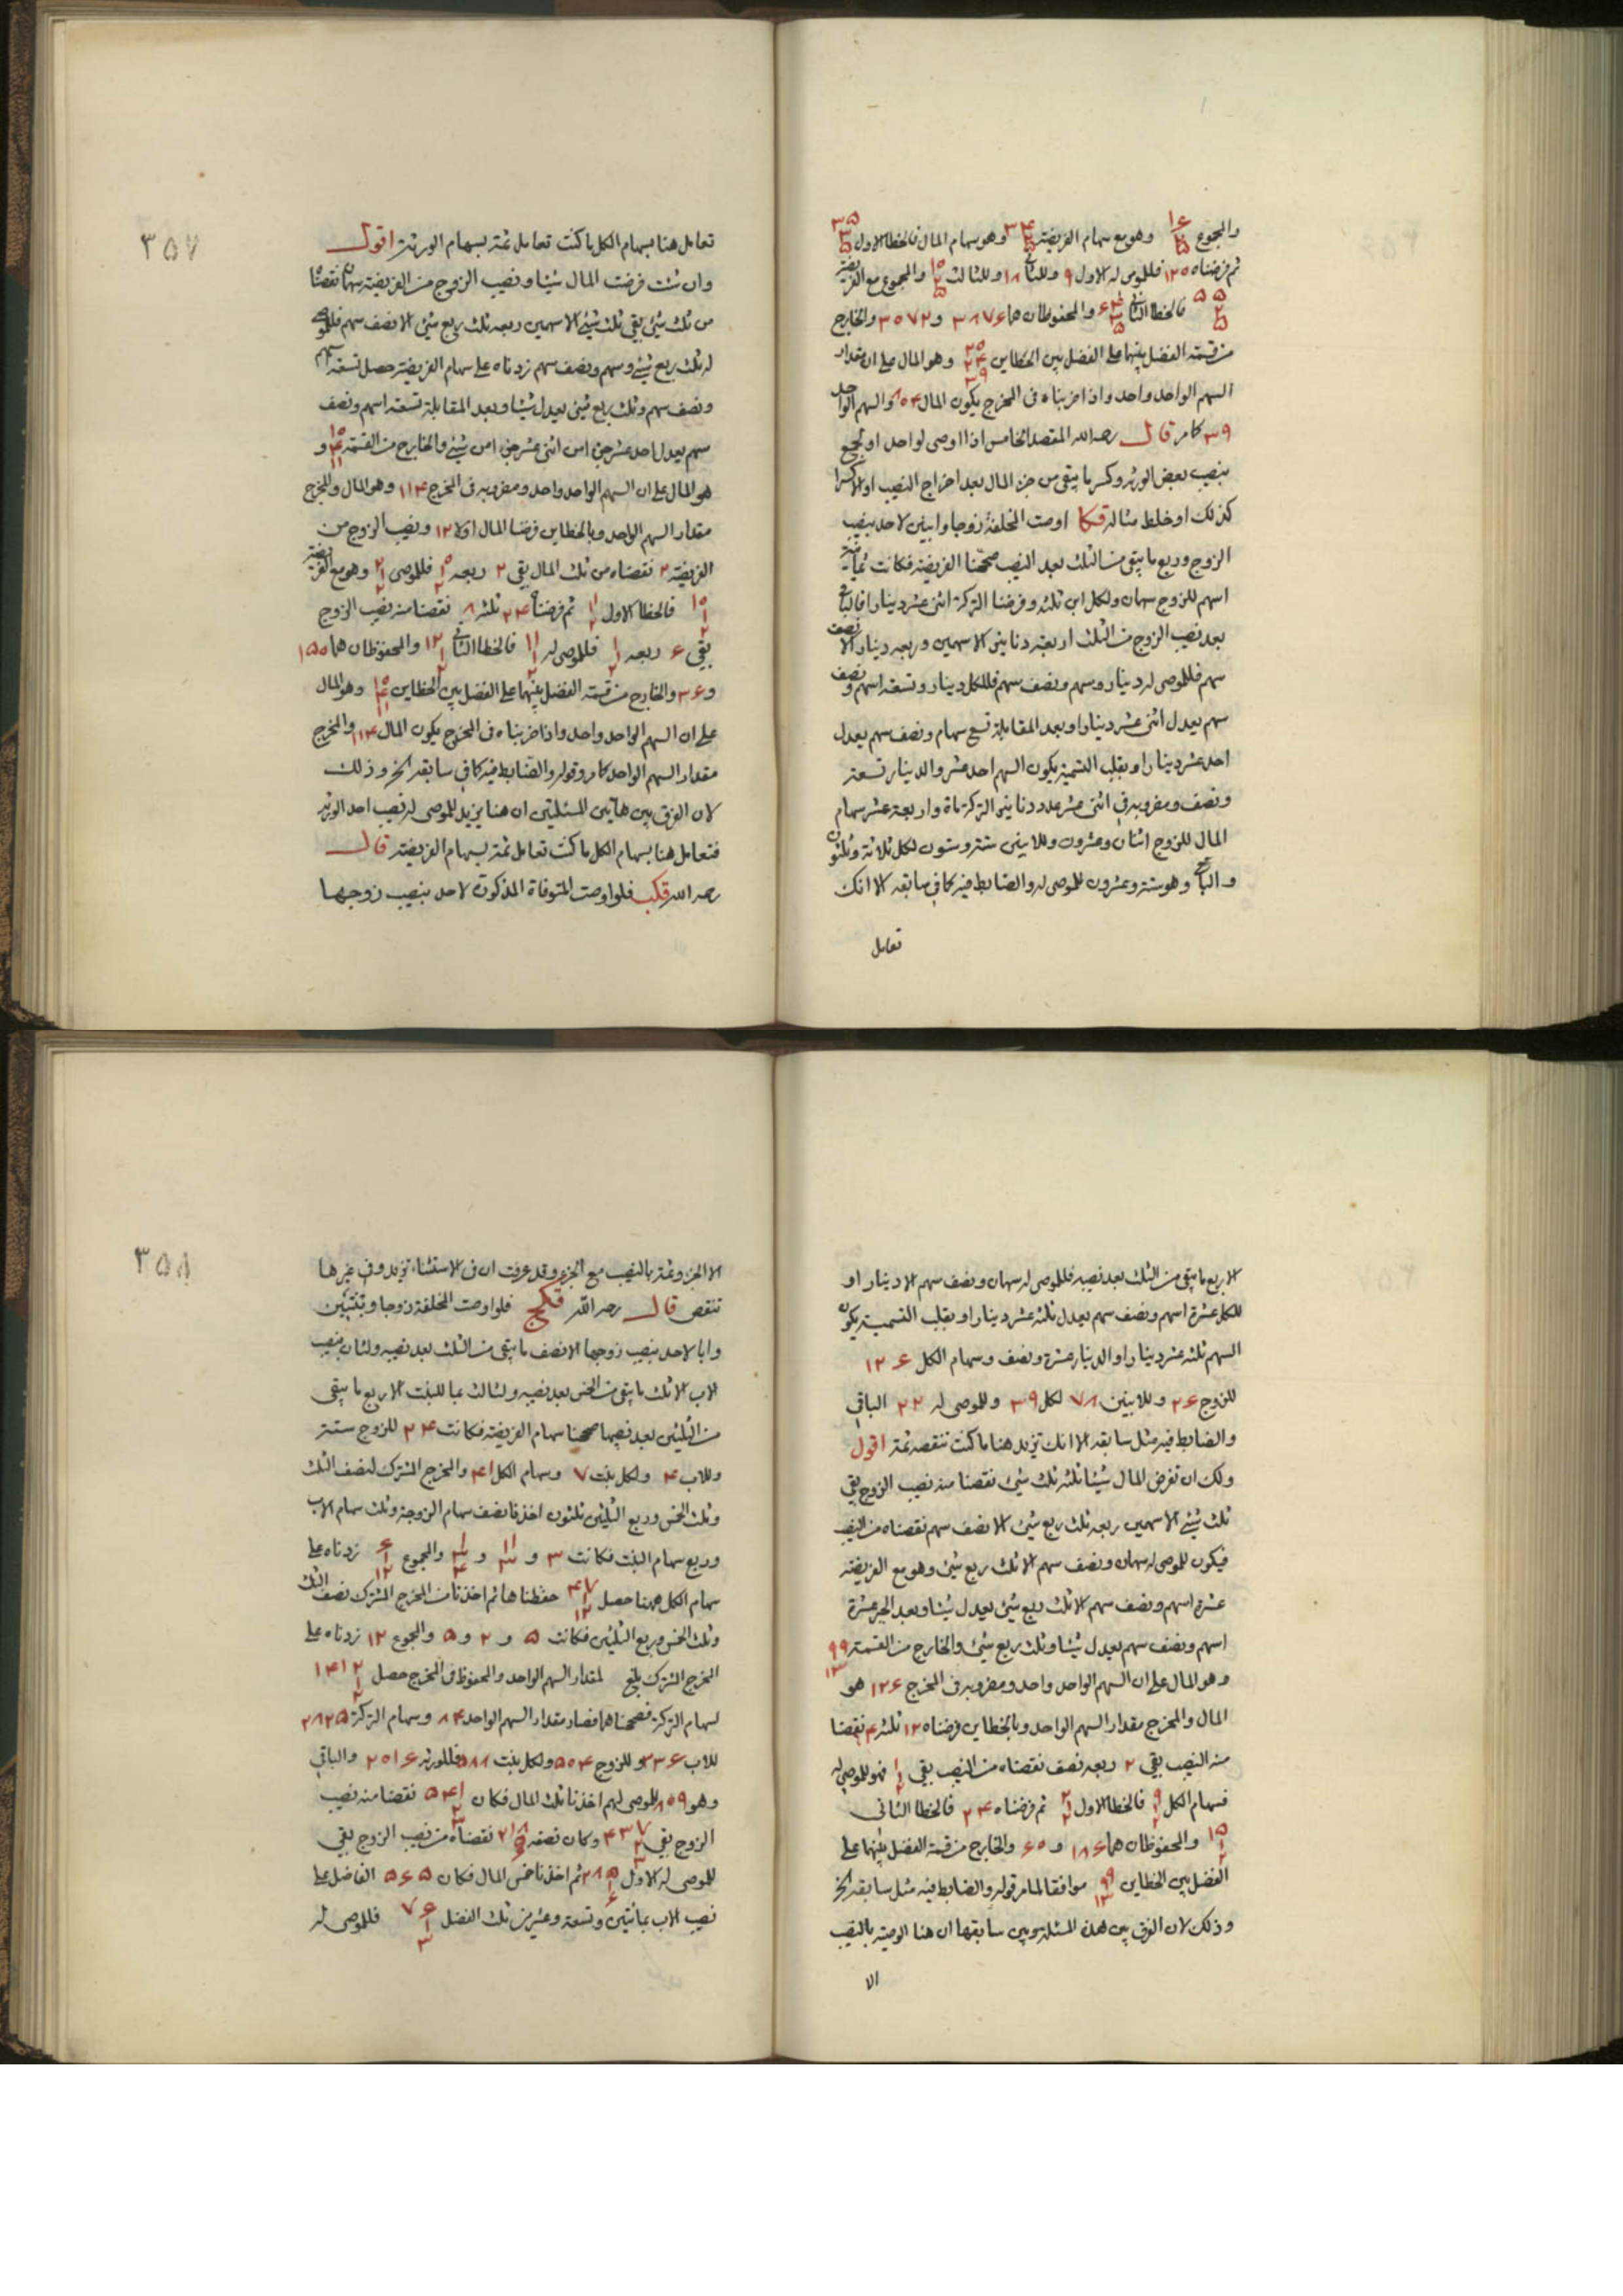 والمجموع ١٦ وهو مع سهام الفريضة ٣٤ وهو سهام المال فالخطا الاول ٣٥
ثم فرضناه ١٢٥ فللموصى له الاول ٩ وللثانى ١٨ وللثالث والمجموع مع الفريضة
٥٥ فالخطا الثانى والمحفوظان هما ٣٨٧٦ و ٣٥٧٢ والخارج
من قسمة الفضل بينهما على الفضل بين الخطاين وهو المال على ان مقدار
السهم الواحد واحد واذا ضربناه فى المخرج يكون المال والسهم الواحد
٣٩ كما مر قال رحمه الله المقصد الخامس اذا اوصى لواحد او لجمع
بنصيب بعض الورثة وكسر ما يبقى من جزء المال بعد اخراج النصيب او الا كسرا
كذلك او خلط مثاله قكا اوصت المخلفة زوجا وابنين لاحد بنصيب
الزوج وربع ما يبقى من الثلث بعد النصيب صححنا الفريضة فكانت ثمانية
اسهم للزوج سهمان ولكل ابن ثلثة وفرضنا التركة اثنى عشر دينارا فالباقى
بعد نصيب الزوج من الثلث اربعة دنانير الا سهمين وربعه دينار الا نصف
سهم فللموصى له دينار وسهم ونصف سهم فللكل دينار وتسعة اسهم ونصف
سهم يعدل اثنى عشر دينارا وبعد المقابلة تسع سهام ونصف سهم يعدل
احد عشر دينارا وبقلب التسمية يكون السهم احد عشر والدينار تسعة
ونصف ومضروبه فى اثنى عشر عدد دنانير التركة ماة واربعة عشر سهام
المال للزوج اثنان وعشرون وللابنين ستة وستون لكل ثلاثة وثلثون
والباقى وهو ستة وعشرون للموصى له والضابط فيه كما فى سابقه الا انك
تعامل
٣٥٧
تعامل هنا بسهام الكل ما كنت تعامل ثمة بسهام الورثة اقول
وان شئت فرضت المال شيئا ونصيب الزوج من الفريضة سهمان نقصنا
من ثلث شئ بقى ثلث شئ الا سهمين ربعه ثلث ربع شئ الا نصف سهم فللموصى
له ثلث ربع شئ وسهم ونصف سهم زدناه على سهام الفريضة حصل تسعة اسهم
ونصف سهم وثلث ربع شئ يعدل شيئا وبعد المقابلة تسعة اسهم ونصف
سهم يعدل احد عشر جزءا من اثنى عشر جزءا من شئ والخارج من القسمة و
هو المال على ان السهم الواحد واحد ومضروبه فى المخرج ١١٤ وهو المال والمخرج
مقدار السهم الواحد وبالخطاين فرضنا المال اولا ١٢ ونصيب الزوج من
الفريضة ٢ نقصناه من ثلث المال بقى ٢ ربعه فللموصى وهو مع الفريضة
فالخطا الاول ثم فرضناه ٢٤ ثلثه ٨ نقصنا منه نصيب الزوج
بقى ٦ ربعه فللموصى له فالخطا الثانى ١٢ والمحفوظان هما ١٥٠
و ٣٦ والخارج من قسمة الفضل بينهما على الفضل بين الخطاين وهو المال
على ان السهم الواحد واحد واذا ضربناه فى المخرج يكون المال ١١٤ والمخرج
مقدار السهم الواحد كما مر وقوله والضابط فيه كما فى سابقه الخ وذلك
لان الفرق بين هاتين المسئلتين ان هنا يزيد للموصى له نصيب احد الورثة
فتعامل هنا بسهام الكل ما كنت تعامل ثمة بسهام الفريضة قال
رحمه الله قكب فلو اوصت المتوفاة المذكورة لاحد بنصيب زوجها
الا ربع ما يبقى من الثلث بعد نصيبه فللموصى له سهمان ونصف سهم الا دينارا و
للكل عشرة اسهم ونصف سهم يعدل ثلثة عشر دينارا وبقلب التسمية يكون
السهم ثلثة عشر دينارا والدينار عشرة ونصف وسهام الكل ١٢٦
للزوج ٢٦ وللابنين ٧٨ لكل ٣٩ وللموصى له ٢٢ الباقى
والضابط فيه مثل سابقه الا انك تزيد هنا ما كنت تنقصه ثمة اقول
ولك ان تفرض المال شيئا ثلثه ثلث شئ نقصنا منه نصيب الزوج بقى
ثلث شئ الا سهمين ربعه ثلث ربع شئ الا نصف سهم نقصناه من النصيب
فيكون للموصى له سهمان ونصف سهم الا ثلث ربع شئ وهو مع الفريضة
عشرة اسهم ونصف سهم الا ثلث ربع شئ يعدل شيئا وبعد الجبر عشرة
اسهم ونصف سهم يعدل شيئا وثلث ربع شئ والخارج من القسمة ٩
وهو المال على ان السهم الواحد واحد ومضروبه فى المخرج ١٢٦ هو
المال والمخرج مقدار السهم الواحد وبالخطاين فرضناه ١٢ ثلثه ٤ نقصنا
منه النصيب بقى ٢ ربعه نصف نقصناه من النصيب بقى فهو للموصى له
فسهام الكل ٩ فالخطا الاول ٢ ثم فرضناه ٢٤ فالخطا الثانى
١٥ والمحفوظان هما ١٨٦ و ٦٠ والخارج من قسمة الفضل بينهما على
الفضل بين الخطاين موافقا لما مر قوله والضابط فيه مثل سابقه الخ
وذلك لان الفرق بين هذه المسئلة وبين سابقها ان هنا الوصية بالنصيب
الا
٣٥٨
الا الجزء وثمة بالنصيب مع الجزء وقد عرفت ان فى الاستثناء تزيد وفى غيرها
تنقص قال رحمه الله قكج فلو اوصت المخلفة زوجا وبنتين
وابا لاحد بنصيب زوجها الا نصف ما يبقى من الثلث بعد نصيبه ولثان بنصيب
الاب الا ثلث ما يبقى من الخمس بعد نصيبه ولثالث بما للبنت الا ربع ما يبقى
من الثلثين بعد نصيبها صححنا سهام الفريضة فكانت ٢٤ للزوج ستة
وللاب ٤ ولكل بنت ٧ وسهام الكل ٤١ والمخرج المشترك لنصف الثلث
وثلث الخمس وربع الثلثين ثلثون اخذنا نصف سهام الزوجة وثلث سهام الاب
وربع سهام البنت فكانت ٣ و و والمجموع ٦ زدناه على
سهام الكل ههنا حصل ٤٧ حفظناها ثم اخذنا من المخرج المشترك نصف الثلث
وثلث الخمس وربع الثلثين فكانت ٥ و ٢ و ٥ والمجموع ١٢ زدناه على
المخرج المشترك بلغ لمقدار السهم الواحد والمحفوظ فى المخرج حصل ١٤١٢
لسهام التركة فصححناهما فصار مقدار السهم الواحد ٨٤ وسهام التركة ٢٨٢٥
للاب ٣٣٦ وللزوج ٥٠٤ ولكل بنت ٥٨٨ فللورثة ٢٠١٦ والباقى
وهو ٨٠٩ للموصى لهم اخذنا ثلث المال فكان ٩٤١ نقصنا منه نصيب
الزوج بقى ٤٣٧ وكان نصفه ٢١٨ نقصناه من نصيب الزوج بقى
للموصى له الاول ٢٨٥ ثم اخذنا خمس المال فكان ٥٦٥ الفاضل على
نصيب الاب بمائتين وتسعة وعشرين ثلث الفضل ٧٦ فللموصى له